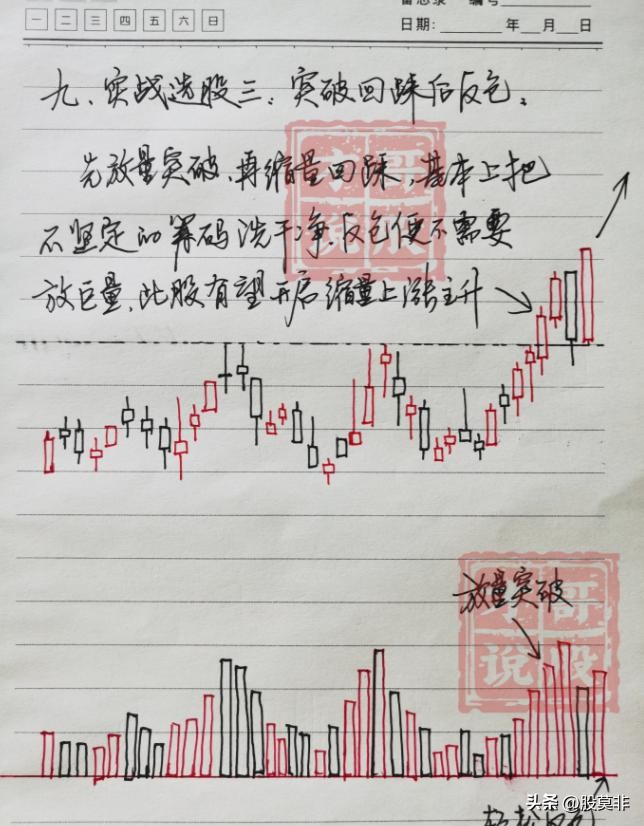 一 二 三 四 五 六 日
备忘录 编号
日期: 年 月 日
九、实战选股三：突破回踩后反包。
先放量突破，再缩量回踩，基本上把
不坚定的筹码洗干净，反包便不需要
放巨量，此股有望开启缩量上涨主升
放量突破
哥
说股
头条 @股莫非